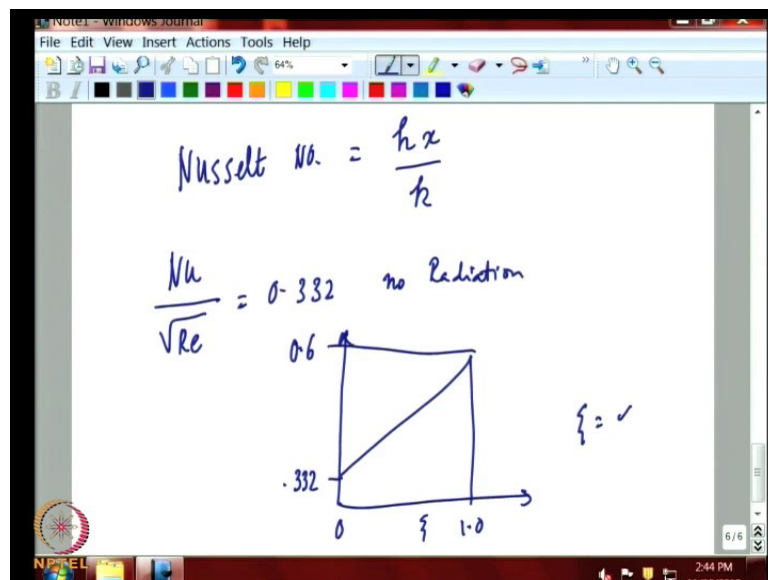 Note1 - Windows Journal
File Edit View Insert Actions Tools Help
64%
B I
Nusselt No. = hx / k
Nu / √Re = 0.332 no Radiation
0.6
.332
0 ξ 1.0
ξ = ✓
6/6
NPTEL
2:44 PM